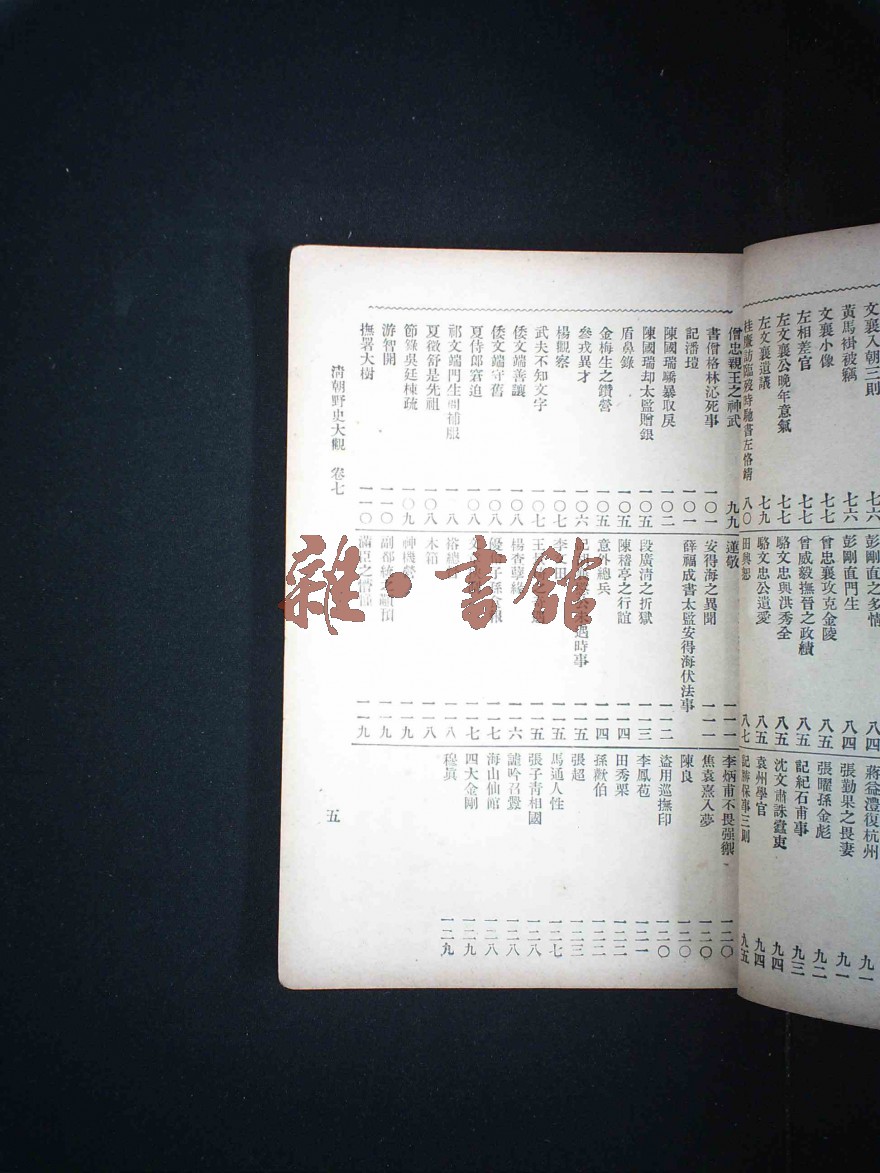 文襄入朝三則 七六
黃馬褂被竊 七六
文襄小像 七七
左相差官 七七
左文襄公晚年意氣 七七
左文襄遺議 七九
八〇
彭剛直之多情 八四
彭剛直門生 八四
曾忠襄攻克金陵 八五
曾威毅撫晉之政績 八五
駱文忠與洪秀全 八五
駱文忠公遺愛 八五
田興恕 八七
蔣益澧復杭州 九一
張勤果之畏妻 九一
張曜孫金彪 九二
記紀石甫事 九三
沈文肅誅蠹吏 九四
袁州學官 九四
記勝保事三則 九五
僧忠親王之神武 九九
書僧格林沁死事 一〇一
記潘塏 一〇一
陳國瑞驕暴取戾 一〇二
陳國瑞却太監贈銀 一〇五
盾鼻錄 一〇五
金梅生之鑽營 一〇五
參戎異才 一〇六
楊觀察 一〇七
武夫不知文字 一〇七
倭文端善讓 一〇八
倭文端守舊 一〇八
夏侍郎窘迫 一〇八
祁文端門生間補服 一〇八
夏徵舒是先祖 一〇八
節錄吳廷棟疏 一〇九
游智開 一一〇
撫署大樹 一一〇
蓮敬 一一一
安得海之異聞 一一一
薛福成書太監安得海伏法事 一一一
段廣清之折獄 一一二
陳稽亭之行誼 一一三
意外總兵 一一四
遇時事 一一五
李 一一五
王 一一五
楊杏孽緣 一一六
優 子孫 報 一一七
一一七
一一八
木箱 一一八
神機營 一一九
副都統之顢頇 一一九
滿 之 一一九
李炳甫不畏强禦 一二〇
焦袁熹入夢 一二〇
陳良 一二〇
盜用巡撫印 一二〇
李鳳苞 一二一
田秀栗 一二二
孫歡伯 一二二
張超 一二三
馬通人性 一二七
張子青相國 一二八
謔吟召釁 一二八
海山仙館 一二八
四大金剛 一二九
穆真 一二九
清朝野史大觀 卷七
五
雜·書館